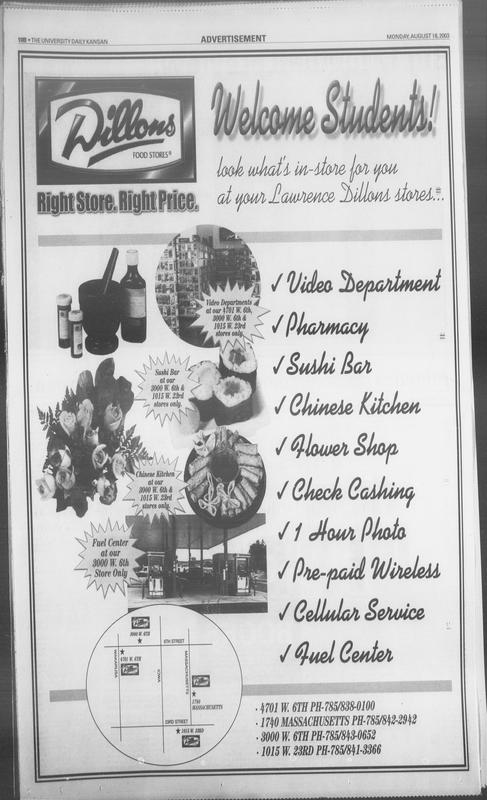 10B • THE UNIVERSITY DAILY KANSAN
ADVERTISEMENT
MONDAY, AUGUST 18, 2003
Dillons
FOOD STORES®
Right Store. Right Price.
Welcome Students!
look what's in-store for you
at your Lawrence Dillons stores...
Video Departments
at our 4701 W. 6th,
3000 W. 6th &
1015 W. 23rd
stores only.
Sushi Bar
at our
3000 W. 6th &
1015 W. 23rd
stores only.
Chinese Kitchen
at our
3000 W. 6th &
1015 W. 23rd
stores only.
Fuel Center
at our
3000 W. 6th
Store Only
✓ Video Department
✓ Pharmacy
✓ Sushi Bar
✓ Chinese Kitchen
✓ Flower Shop
✓ Check Cashing
✓ 1 Hour Photo
✓ Pre-paid Wireless
✓ Cellular Service
✓ Fuel Center
3000 W. 6TH
6TH STREET
4701 W. 6TH
IOWA
MASSACHUSETTS
1740
MASSACHUSETTS
23RD STREET
1015 W. 23RD
· 4701 W. 6TH PH-785/838-0100
· 1740 MASSACHUSETTS PH-785/842-2942
· 3000 W. 6TH PH-785/843-0652
· 1015 W. 23RD PH-785/841-3366